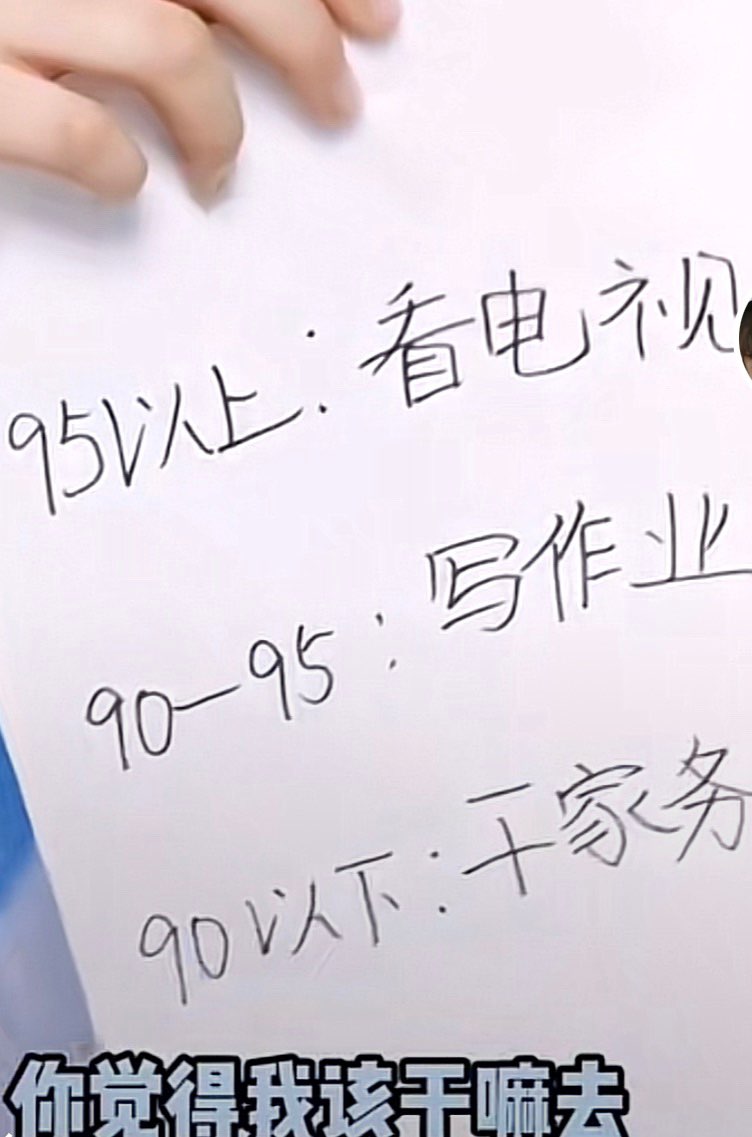 95以上：看电视
90—95：写作业
90以下：干家务
你觉得我该干嘛去